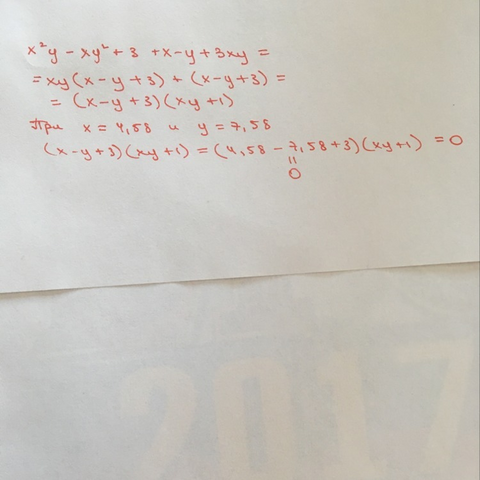 x²y - xy² + 3 + x - y + 3xy =
= xy(x - y + 3) + (x - y + 3) =
= (x - y + 3)(xy + 1)
При x = 4,58 и y = 7,58
(x - y + 3)(xy + 1) = (4,58 - 7,58 + 3)(xy + 1) = 0
=
0
2017